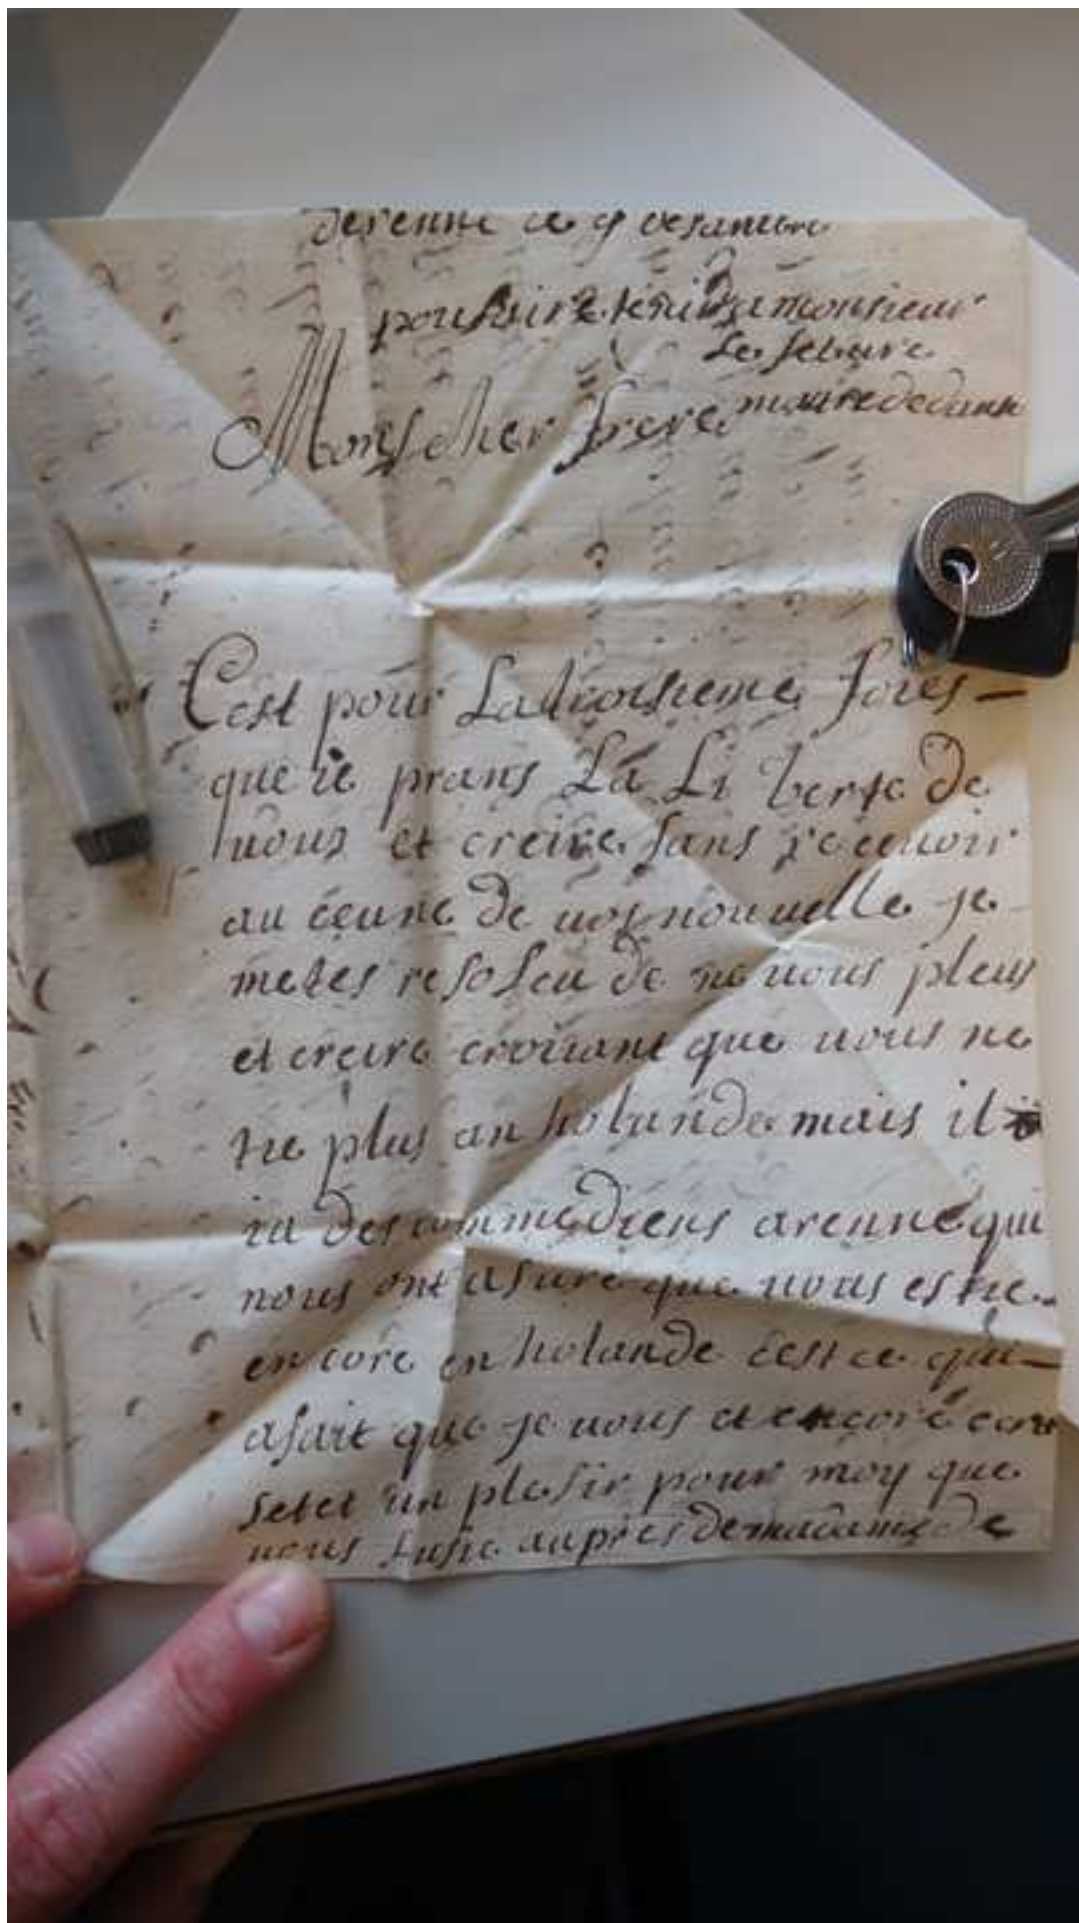 derenne ce 9 desambre
pour faire tenir a monsieur
Le febure
Mons cher frere maitre de danse
C'est pour La troisieme foies -
que ie prans La Li berte de
uous et creire sans receuoir
au ceune de uos nouuelle je
metes resoleu de ne uous pleus
et creire croiiant que uous ne
tie plus an holande mais il
ia des commediens arenne qui
nous ont asuré que uous estie
encore en holande cest ce qui -
afait que je uous et encore
setet un plesir pour moy que
uous fusie aupres de madame de